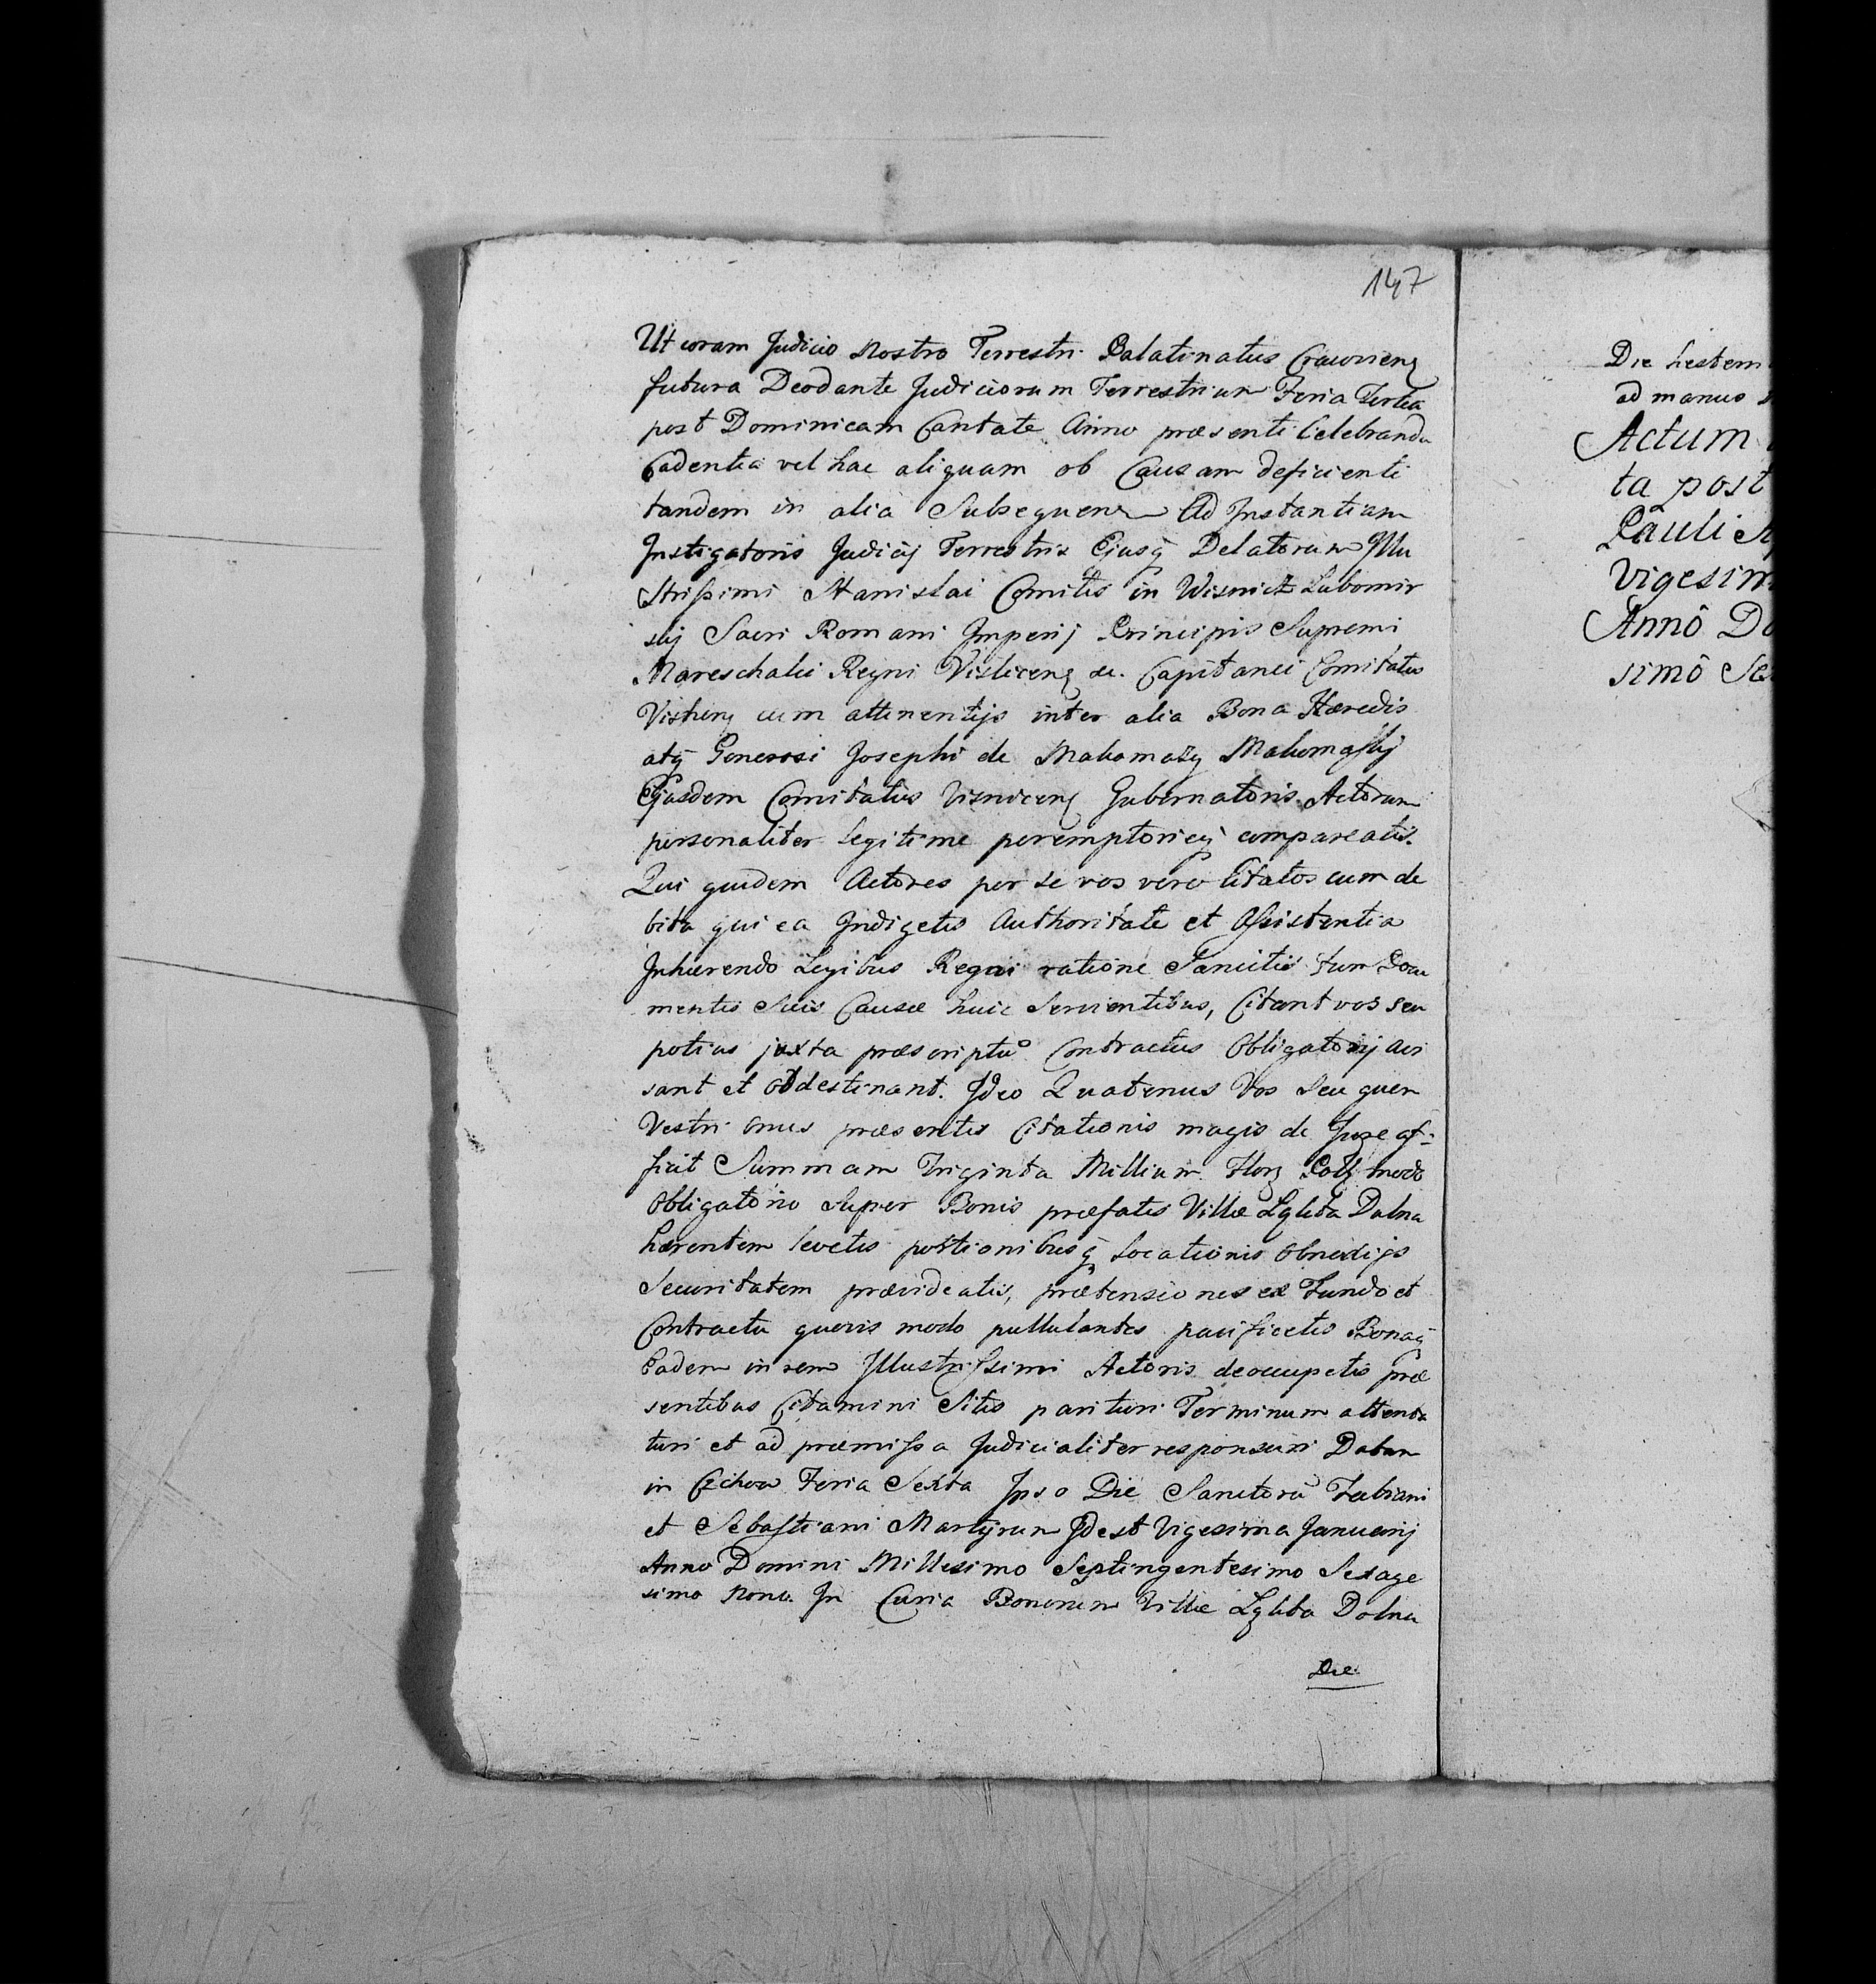 147
Ut coram Judicio Nostro Terrestri Palatinatus Cracovienς
futura Deodante Judiciorum Terrestrium Feria Tertia
post Dominicam Cantate Anno præsenti Celebranda
Cadentia vel hac aliquam ob Causam deficienti
tandem in alia Subsequenς Ad Instantiam
Instigatoris Judicij Terrestris Ejusq̃ Delatorum Illu
strissimi Stanislai Comitis in Wisnicz Lubomir
skij Sacri Romani Imperij Principis Supremi
Mareschalci Regni Vislicenς &c. Capitanei Comitatus
cum attinentijs inter alia Bona Hæredis
atq̃ Generosi Josephi de
Ejusdem Comitatus Visnicenς Gubernatoris Actorum
personaliter legitime peremptorieq̃ compareatis.
Qui quidem Actores per se vos vero Citatos cum de
bita qui ea Indigetis Authoritate et Assistentia
Inhærendo Legibus Regni ratione Sancitis tum Docu
mentis Suis Causæ huic Servientibus, Citant vos seu
potius juxta præscriptũ Contractus Obligatorij avi
sant et obdestinant. Ideo Quatenus Vos Seu quem
Vestri onus præsentis Citationis magis de Jure af=
ficit Summam Triginta Millium Florς Pollς modo
Obligatorio Super Bonis præfatis Villæ Lgkta Dolna
hærentem levetis portionibusq̃ Locationis obnoxijs
Securitatem prævideatis, prætensiones ex Fundo et
Contractu quovis modo pullulantes pacificetis Bonaq̃
Eadem in rem Illustrissimi Actoris deoccupetis præ
sentibus Citamini Sitis parituri Terminum attenta
turi et ad præmissa Judicialiter responsuri Datum
in Feria Sexta Ipso Die Sanctorũ Fabiani
et Sebastiani Martyrum Idest Vigesima Januarij
Anno Domini Millesimo Septingentesimo Sexage
simo Nono. In Curia Bonorum Villæ Lgkta Dolna
Die
Die hestern
ad manus
Actum
ta post
Pauli
vigesim
Annô Do
simô Se